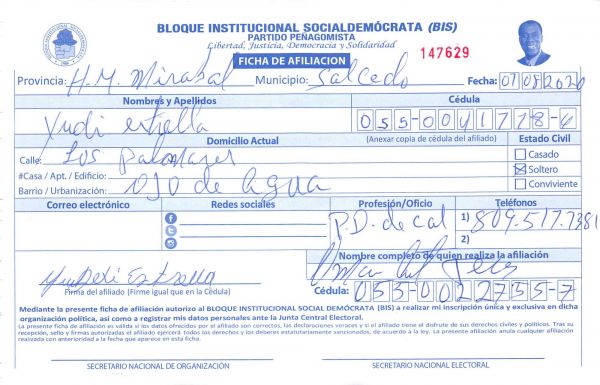 BLOQUE INSTITUCIONAL SOCIALDEMÓCRATA (BIS)
PARTIDO PEÑAGOMISTA
Libertad, Justicia, Democracia y Solidaridad
147629
FICHA DE AFILIACION
Provincia: H.M. Mirabal Municipio: Salcedo Fecha: 07 08 2020
Nombres y Apellidos Cédula
Yudi estrella 055-0041778-6
Domicilio Actual (Anexar copia de cédula del afiliado) Estado Civil
Calle: Los Palmares Casado
#Casa / Apt. / Edificio: Soltero
Barrio / Urbanización: OJO de Agua Conviviente
Correo electrónico Redes sociales Profesión/Oficio Teléfonos
P.D. de cal 1) 809.517.7381
2)
Nombre completo de quien realiza la afiliación
Firma del afiliado (Firme igual que en la Cédula)
Cédula: 055-0022755-7
Mediante la presente ficha de afiliación autorizo al BLOQUE INSTITUCIONAL SOCIAL DEMÓCRATA (BIS) a realizar mi inscripción única y exclusiva en dicha
organización política, así como a registrar mis datos personales ante la Junta Central Electoral.
La presente ficha de afiliación es válida si los datos ofrecidos por el afiliado son correctos, las declaraciones veraces y si el afiliado tiene el disfrute de sus derechos civiles y políticos. Tras su
recepción, sello y firmas autorizadas el afiliado ejercerá todos los derechos y los deberes estatutariamente sancionados, de acuerdo a la ley. La presente afiliación anula cualquier afiliación
realizada con anterioridad a la fecha que aparece en esta ficha.
SECRETARIO NACIONAL DE ORGANIZACIÓN SECRETARIO NACIONAL ELECTORAL